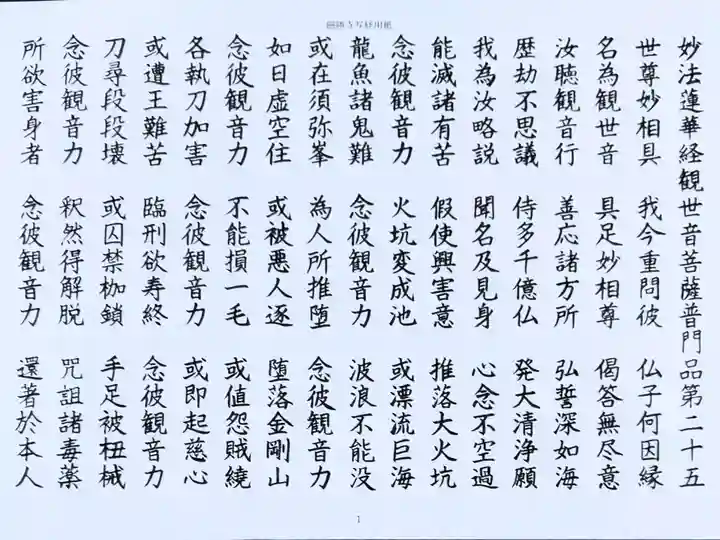 寺写経用紙
妙法蓮華経観世音菩薩普門品第二十五
世尊妙相具 我今重問彼 仏子何因縁
名為観世音 具足妙相尊 偈答無尽意
汝聴観音行 善応諸方所 弘誓深如海
歴劫不思議 侍多千億仏 発大清浄願
我為汝略説 聞名及見身 心念不空過
能滅諸有苦 假使興害意 推落大火坑
念彼観音力 火坑変成池 或漂流巨海
龍魚諸鬼難 念彼観音力 波浪不能没
或在須弥峯 為人所推堕 念彼観音力
如日虚空住 或被悪人逐 堕落金剛山
念彼観音力 不能損一毛 或値怨賊繞
各執刀加害 念彼観音力 或即起慈心
或遭王難苦 臨刑欲寿終 念彼観音力
刀尋段段壊 或囚禁枷鎖 手足被杻械
念彼観音力 釈然得解脱 呪詛諸毒薬
所欲害身者 念彼観音力 還著於本人
1